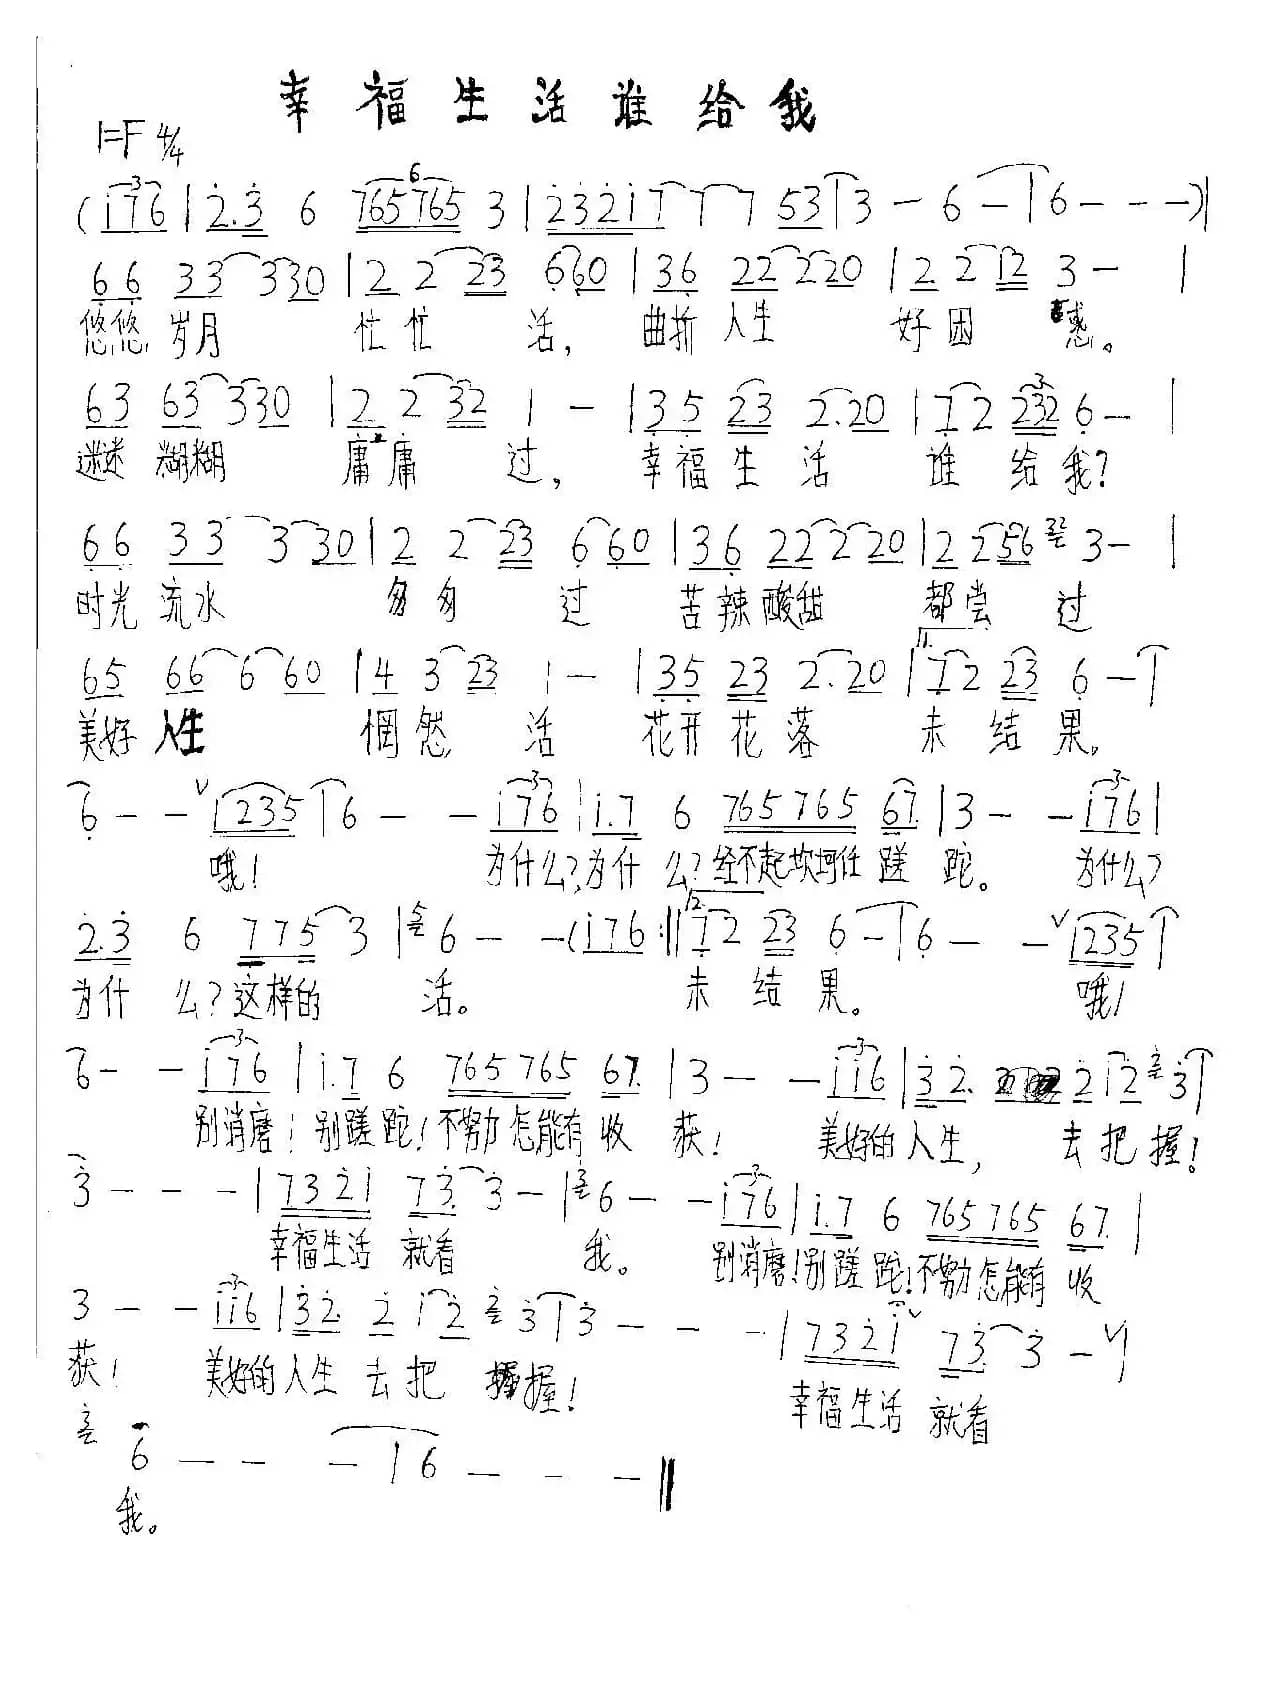 幸福生活谁给我
1=F 4/4
(i76|2.3 6 765765 3|2321777 533-6-|6---)|
66 33 330|2 2 23 660|36 22 220|2 2 12 3-|
悠悠岁月 忙忙 活, 曲折人生 好困惑。
63 63 330|2 2 32 1-|35 23 2.20|7 2 232 6-|
迷迷糊糊 庸庸 过, 幸福生活 谁给我?
66 33 330|2 2 23 660|36 22 220|2 2 56 32 3-|
时光流水 匆匆 过 苦辣酸甜 都尝过
1.
65 66 6 60|4 3 23 1-|35 23 2.20|7 2 23 6-|
美好人生 惘然 活 花开花落 未结果。
6--1235|6--i76|i.7 6 765765 67.|3--i76|
哦! 为什么?为什么?经不起坎坷任蹉跎。 为什么?
2.
2.3 6 7753|5 6--(i76:‖7 2 23 6-|6--1235|
为什么?这样的 活。 未结果。 哦!
6--i76|i.7 6 765765 67.|3--ii6|32. 2i2 3|
别消磨!别蹉跎!不努力怎能有收获! 美好的人生, 去把握!
3---|732i 73.3-|3 6--i76|i.7 6 765765 67.|
幸福生活 就看 我。 别消磨!别蹉跎!不努力怎能有收
3--ii6|32. 2 i2 3|3---|732i 73.3-|
获! 美好的人生去把 握! 幸福生活 就看
6---|6---‖
我。